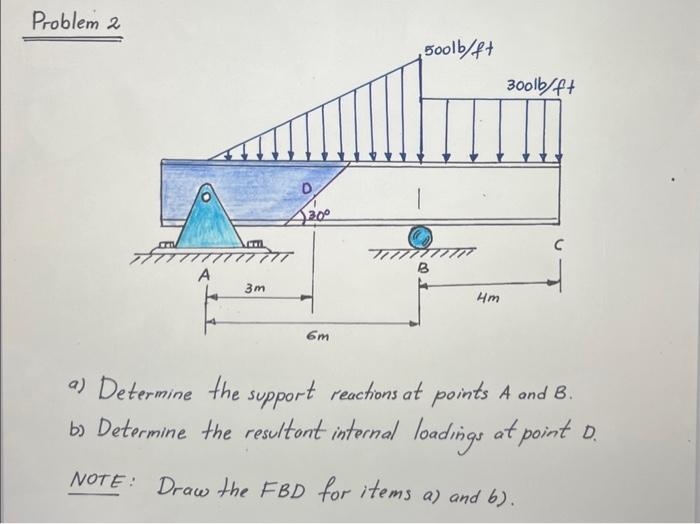 Problem 2
500lb/ft
300lb/ft
D
30°
C
A
B
3m
4m
6m
a) Determine the support reactions at points A and B.
b) Determine the resultant internal loadings at point D.
NOTE: Draw the FBD for items a) and b).